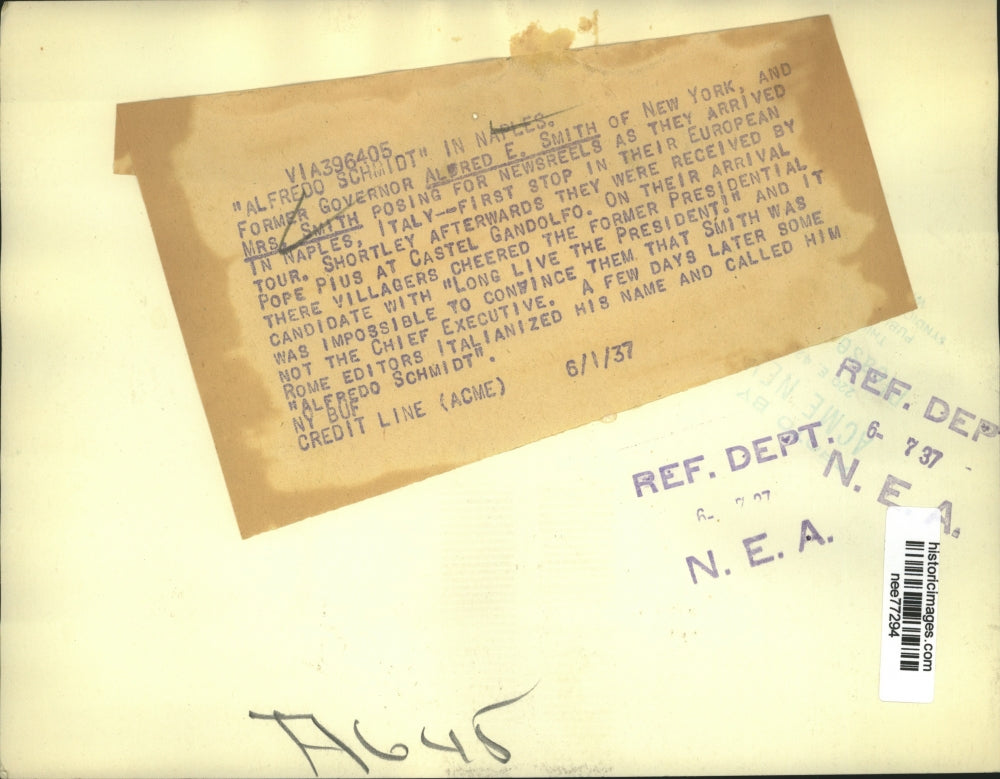 VIA396405
"ALFREDO SCHMIDT" IN NAPLES.
FORMER GOVERNOR ALFRED E. SMITH OF NEW YORK, AND
MRS. SMITH POSING FOR NEWSREELS AS THEY ARRIVED
IN NAPLES, ITALY--FIRST STOP IN THEIR EUROPEAN
TOUR. SHORTLEY AFTERWARDS THEY WERE RECEIVED BY
POPE PIUS AT CASTEL GANDOLFO. ON THEIR ARRIVAL
THERE VILLAGERS CHEERED THE FORMER PRESIDENTIAL
CANDIDATE WITH "LONG LIVE THE PRESIDENT!" AND IT
WAS IMPOSSIBLE TO CONVINCE THEM THAT SMITH WAS
NOT THE CHIEF EXECUTIVE. A FEW DAYS LATER SOME
ROME EDITORS ITALIANIZED HIS NAME AND CALLED HIM
"ALFREDO SCHMIDT".
NY BUF
CREDIT LINE (ACME) 6/1/37
REF. DEP
6- 7 37
N. E. A.
REF. DEPT.
6- 7 37
N. E. A.
ACME NEW
historicimages.com
nee77294
A645